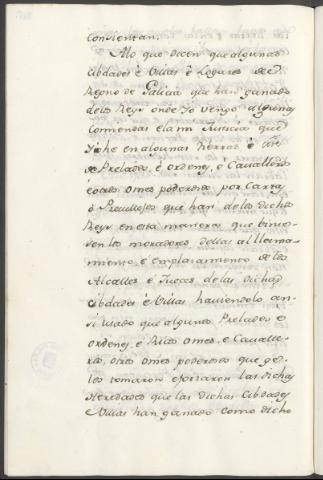 consientan.
Alo que dicen que algunas
cibdades è Villas è Logares de el
Regno de Galicia que han ganado
delos Reys onde Yo vengo algunas
comiendas ela mi Justicia que
Yo he en algunas tierras è
de Prelados, è ordenes, e Cavalleros
è otros omes poderosos por Cartas
ò Previllejos que han delos dichos
Reys en esta manera que binie-
sen los moradores dellas al llama-
miento, è Emplasamiento de los
Alcalles è Jueces delas dichas
cibdades è Villas haviendolo an-
si usado que algunos Prelados è
ordenes, e Ricos omes, e Cavalle-
ros, otros omes poderosos que ge-
los tomaron e forzaron las dichas
Heredades que las dichas Cibdades
e Villas han ganado como dicho